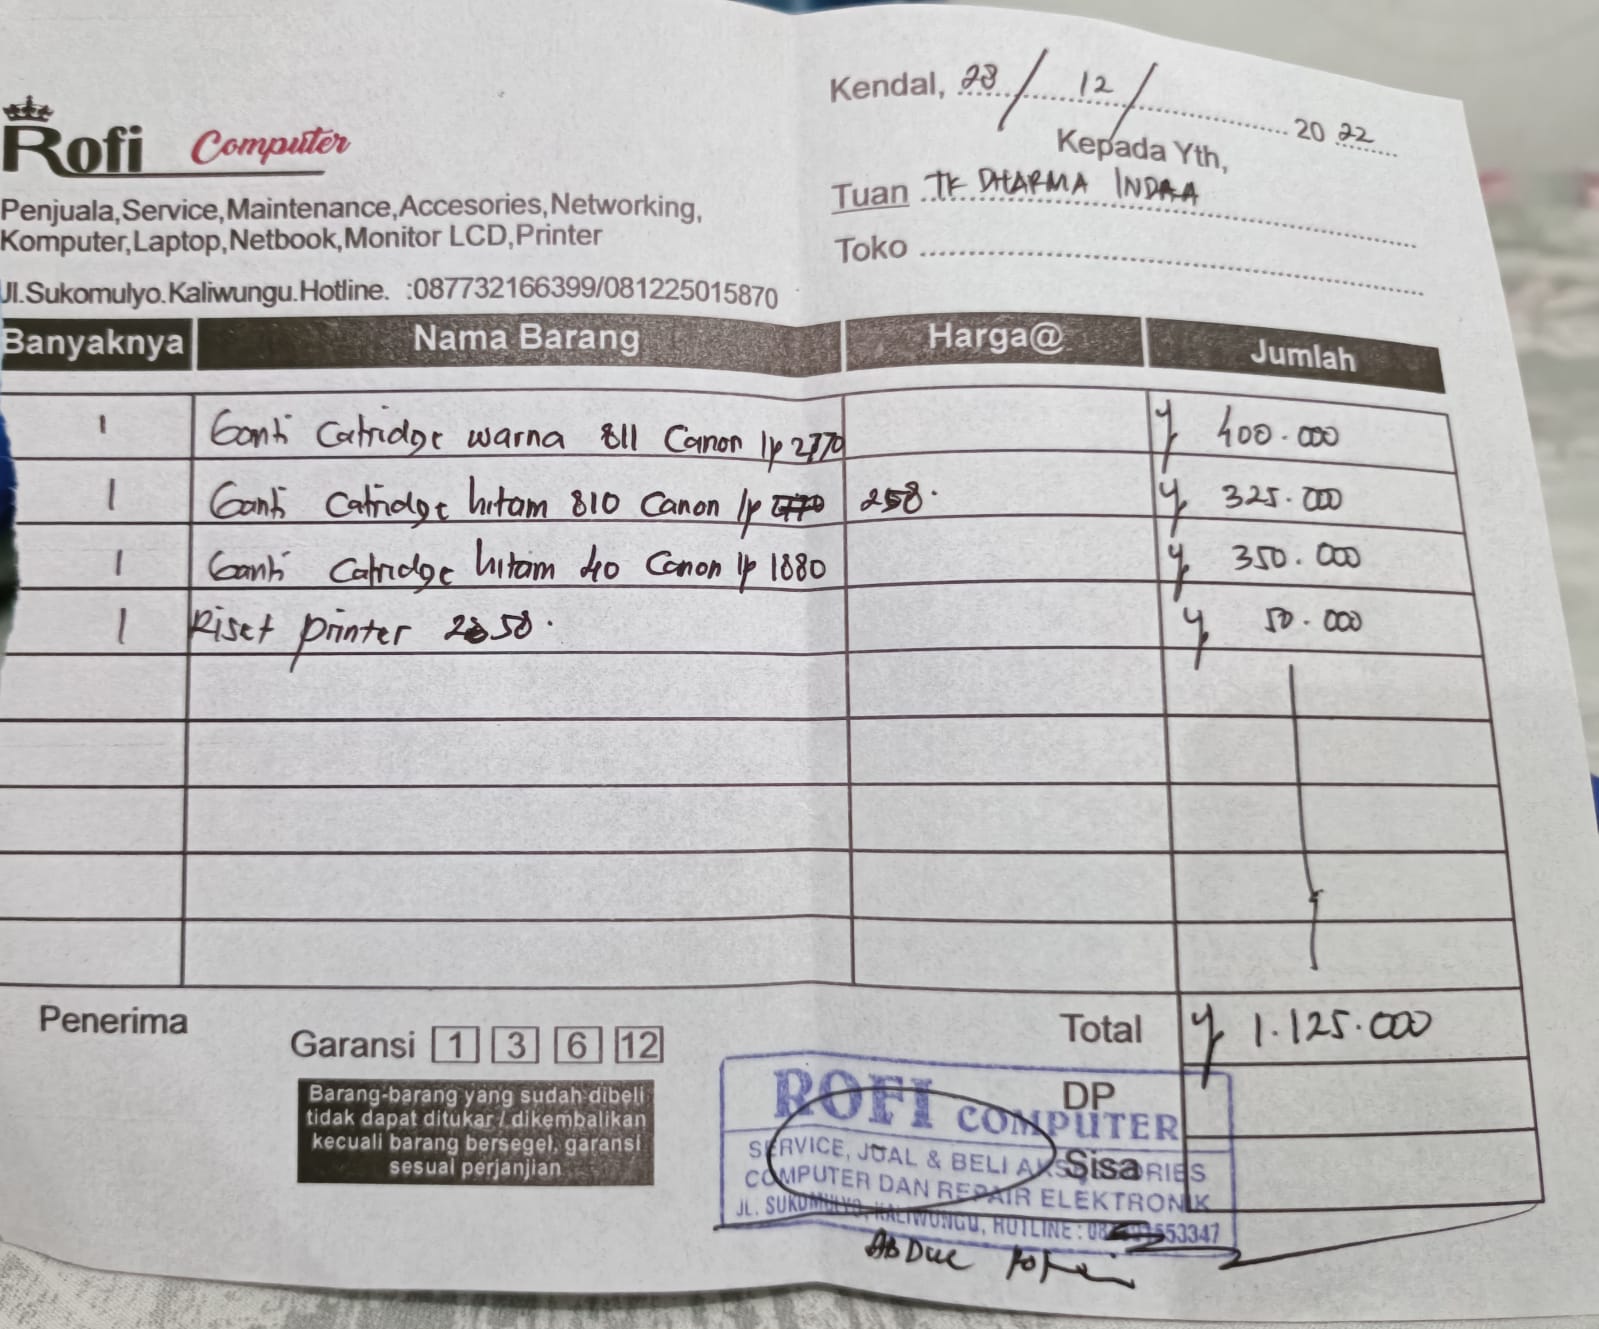 Rofi Computer
Penjuala,Service,Maintenance,Accesories,Networking,
Komputer,Laptop,Netbook,Monitor LCD,Printer
Jl.Sukomulyo.Kaliwungu.Hotline. :087732166399/081225015870
Kendal, 28 / 12 / 2022
Kepada Yth,
Tuan TK DHARMA INDRA
Toko
Banyaknya Nama Barang Harga@ Jumlah
1 Ganti Catridge warna 811 Canon Ip 2770 400.000
1 Ganti Catridge hitam 810 Canon Ip 258. 325.000
1 Ganti Catridge hitam 40 Canon Ip 1880 350.000
1 Riset printer 50.000
Penerima
Garansi 1 3 6 12
Barang-barang yang sudah dibeli
tidak dapat ditukar / dikembalikan
kecuali barang bersegel, garansi
sesual perjanjian
Total 1.125.000
DP
Sisa
ROFI COMPUTER
SERVICE, JUAL & BELI AKSESORIES
COMPUTER DAN REPAIR ELEKTRONIK
JL. SUKOMULYO, KALIWUNGU, HOTLINE :